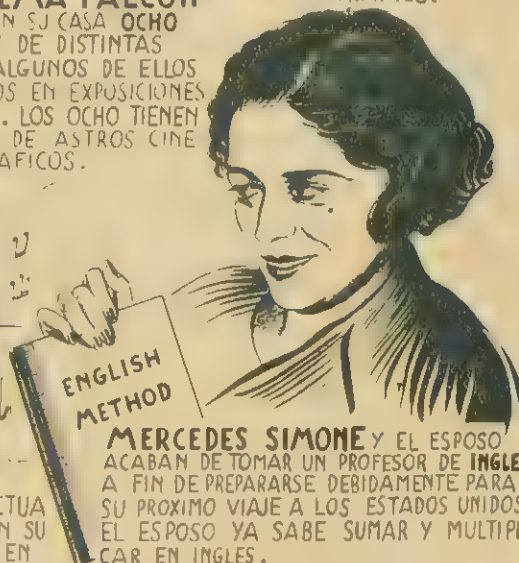 EMA FALCON
N SU CASA OCHO
DE DISTINTAS
ALGUNOS DE ELLOS
OS EN EXPOSICIONES
. LOS OCHO TIENEN
DE ASTROS CINE
AFICOS.
ENGLISH
METHOD
MERCEDES SIMONE Y EL ESPOSO
ACABAN DE TOMAR UN PROFESOR DE INGLE
A FIN DE PREPARARSE DEBIDAMENTE PARA
SU PROXIMO VIAJE A LOS ESTADOS UNIDOS
EL ESPOSO YA SABE SUMAR Y MULTIPL
CAR EN INGLES.
CTUA
N SU
EN